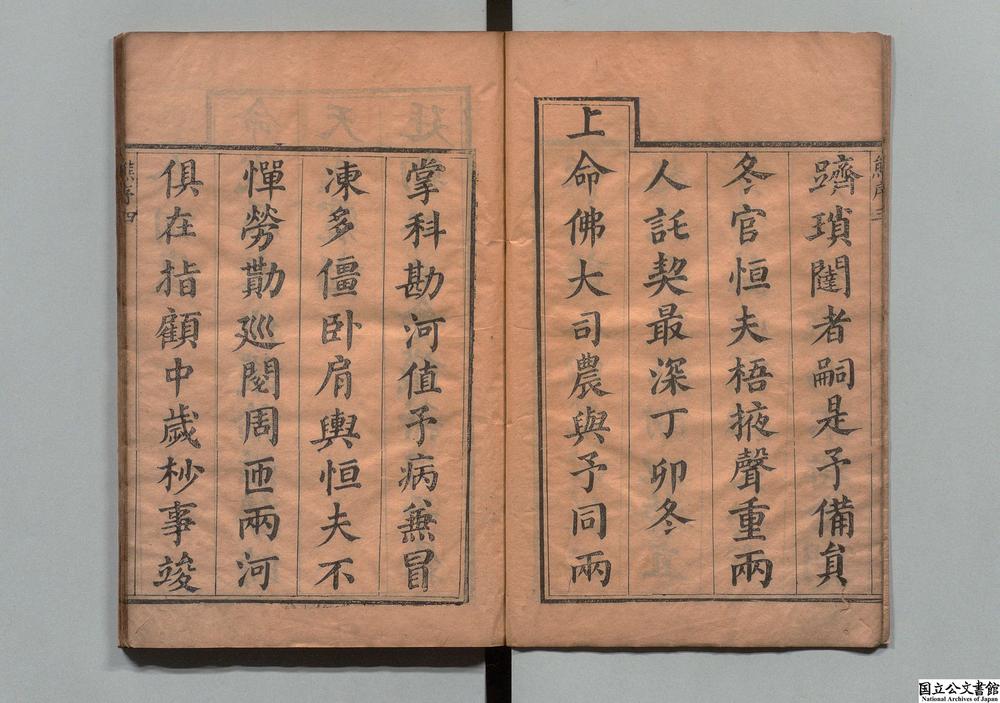 躋瑣闥者嗣是予備貟
冬官恒夫梧掖聲重兩
人託契最深丁卯冬
上命佛大司農與予同兩
掌科勘河值予病兼冒
凍多僵卧肩輿恒夫不
憚勞勩廵閱周匝兩河
俱在指顧中歲杪事竣
熊序三
熊序四
国立公文書館
National Archives of Japan